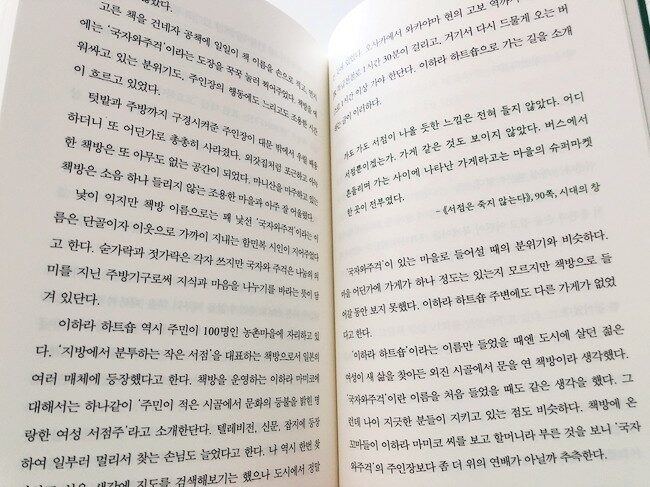 았다.
고른 책을 건네자 공책에 일일이 책 이름을 손으로 적고,
에는 '국자와주걱'이라는 도장을 꾹꾹 눌러 찍어주었다. 책방을 에
워싸고 있는 분위기도, 주인장의 행동에도 느리고도 조용한 시간
이 흐르고 있었다.
텃밭과 주방까지 구경시켜준 주인장이 대문 밖에서 우릴 배웅
하더니 또 어딘가로 총총히 사라졌다. 외갓집처럼 포근하고 아늑
한 책방은 또 아무도 없는 공간이 되었다. 마니산을 마주하고 있는
책방은 소음 하나 들리지 않는 조용한 마을과 아주 잘 어울렸다.
낯이 익지만 책방 이름으로는 꽤 낯선 '국자와주걱'이라는 이
름은 단골이자 이웃으로 가까이 지내는 함민복 시인이 지어주었다
고 한다. 숟가락과 젓가락은 각자 쓰지만 국자와 주걱은 나눔의 의
미를 지닌 주방기구로써 지식과 마음을 나누기를 바라는 뜻이 담
겨 있단다.
이하라 하트숍 역시 주민이 100명인 농촌마을에 자리하고 있
다. '지방에서 분투하는 작은 서점'을 대표하는 책방으로서 일본의
여러 매체에 등장했다고 한다. 책방을 운영하는 이하라 마미코에
대해서는 하나같이 '주민이 적은 시골에서 문화의 등불을 밝힌 명
랑한 여성 서점주'라고 소개한단다. 텔레비전, 신문, 잡지에 등장
하여 일부러 멀리서 찾는 손님도 늘었다고 한다. 나 역시 한번 찾
생각에 지도를 검색해보기는 했으나 도시에서 정말
오사카에서 와카야마 현의 고보 역까지
1시간 30분이 걸리고, 거기서 다시 드물게 오는 버
1시간 이상 가야 한단다. 이하라 하트숍으로 가는 길을 소개
글이 이러하다.
가도 가도 서점이 나올 듯한 느낌은 전혀 들지 않았다. 어디
서점뿐이겠는가. 가게 같은 것도 보이지 않았다. 버스에서
흔들리며 가는 사이에 나타난 가게라고는 마을의 슈퍼마켓
한 곳이 전부였다.
-《서점은 죽지 않는다》, 90쪽, 시대의 창
'국자와주걱'이 있는 마을로 들어설 때의 분위기와 비슷하다.
마을 어딘가에 가게가 하나 정도는 있는지 모르지만 책방으로 들
어갈 동안 보지 못했다. 이하라 하트숍 주변에도 다른 가게가 없었
다고 한다.
'이하라 하트숍'이라는 이름만 들었을 때엔 도시에 살던 젊은
여성이 새 삶을 찾아든 외진 시골에서 문을 연 책방이라 생각했다.
'국자와주걱'이란 이름을 처음 들었을 때도 같은 생각을 했다. 그
런데 나이 지긋한 분들이 지키고 있는 점도 비슷하다. 책방에 온
꼬마들이 이하라 마미코 씨를 보고 할머니라 부른 것을 보니 '국자
와주걱'의 주인장보다 좀 더 위의 연배가 아닐까 추측한다.